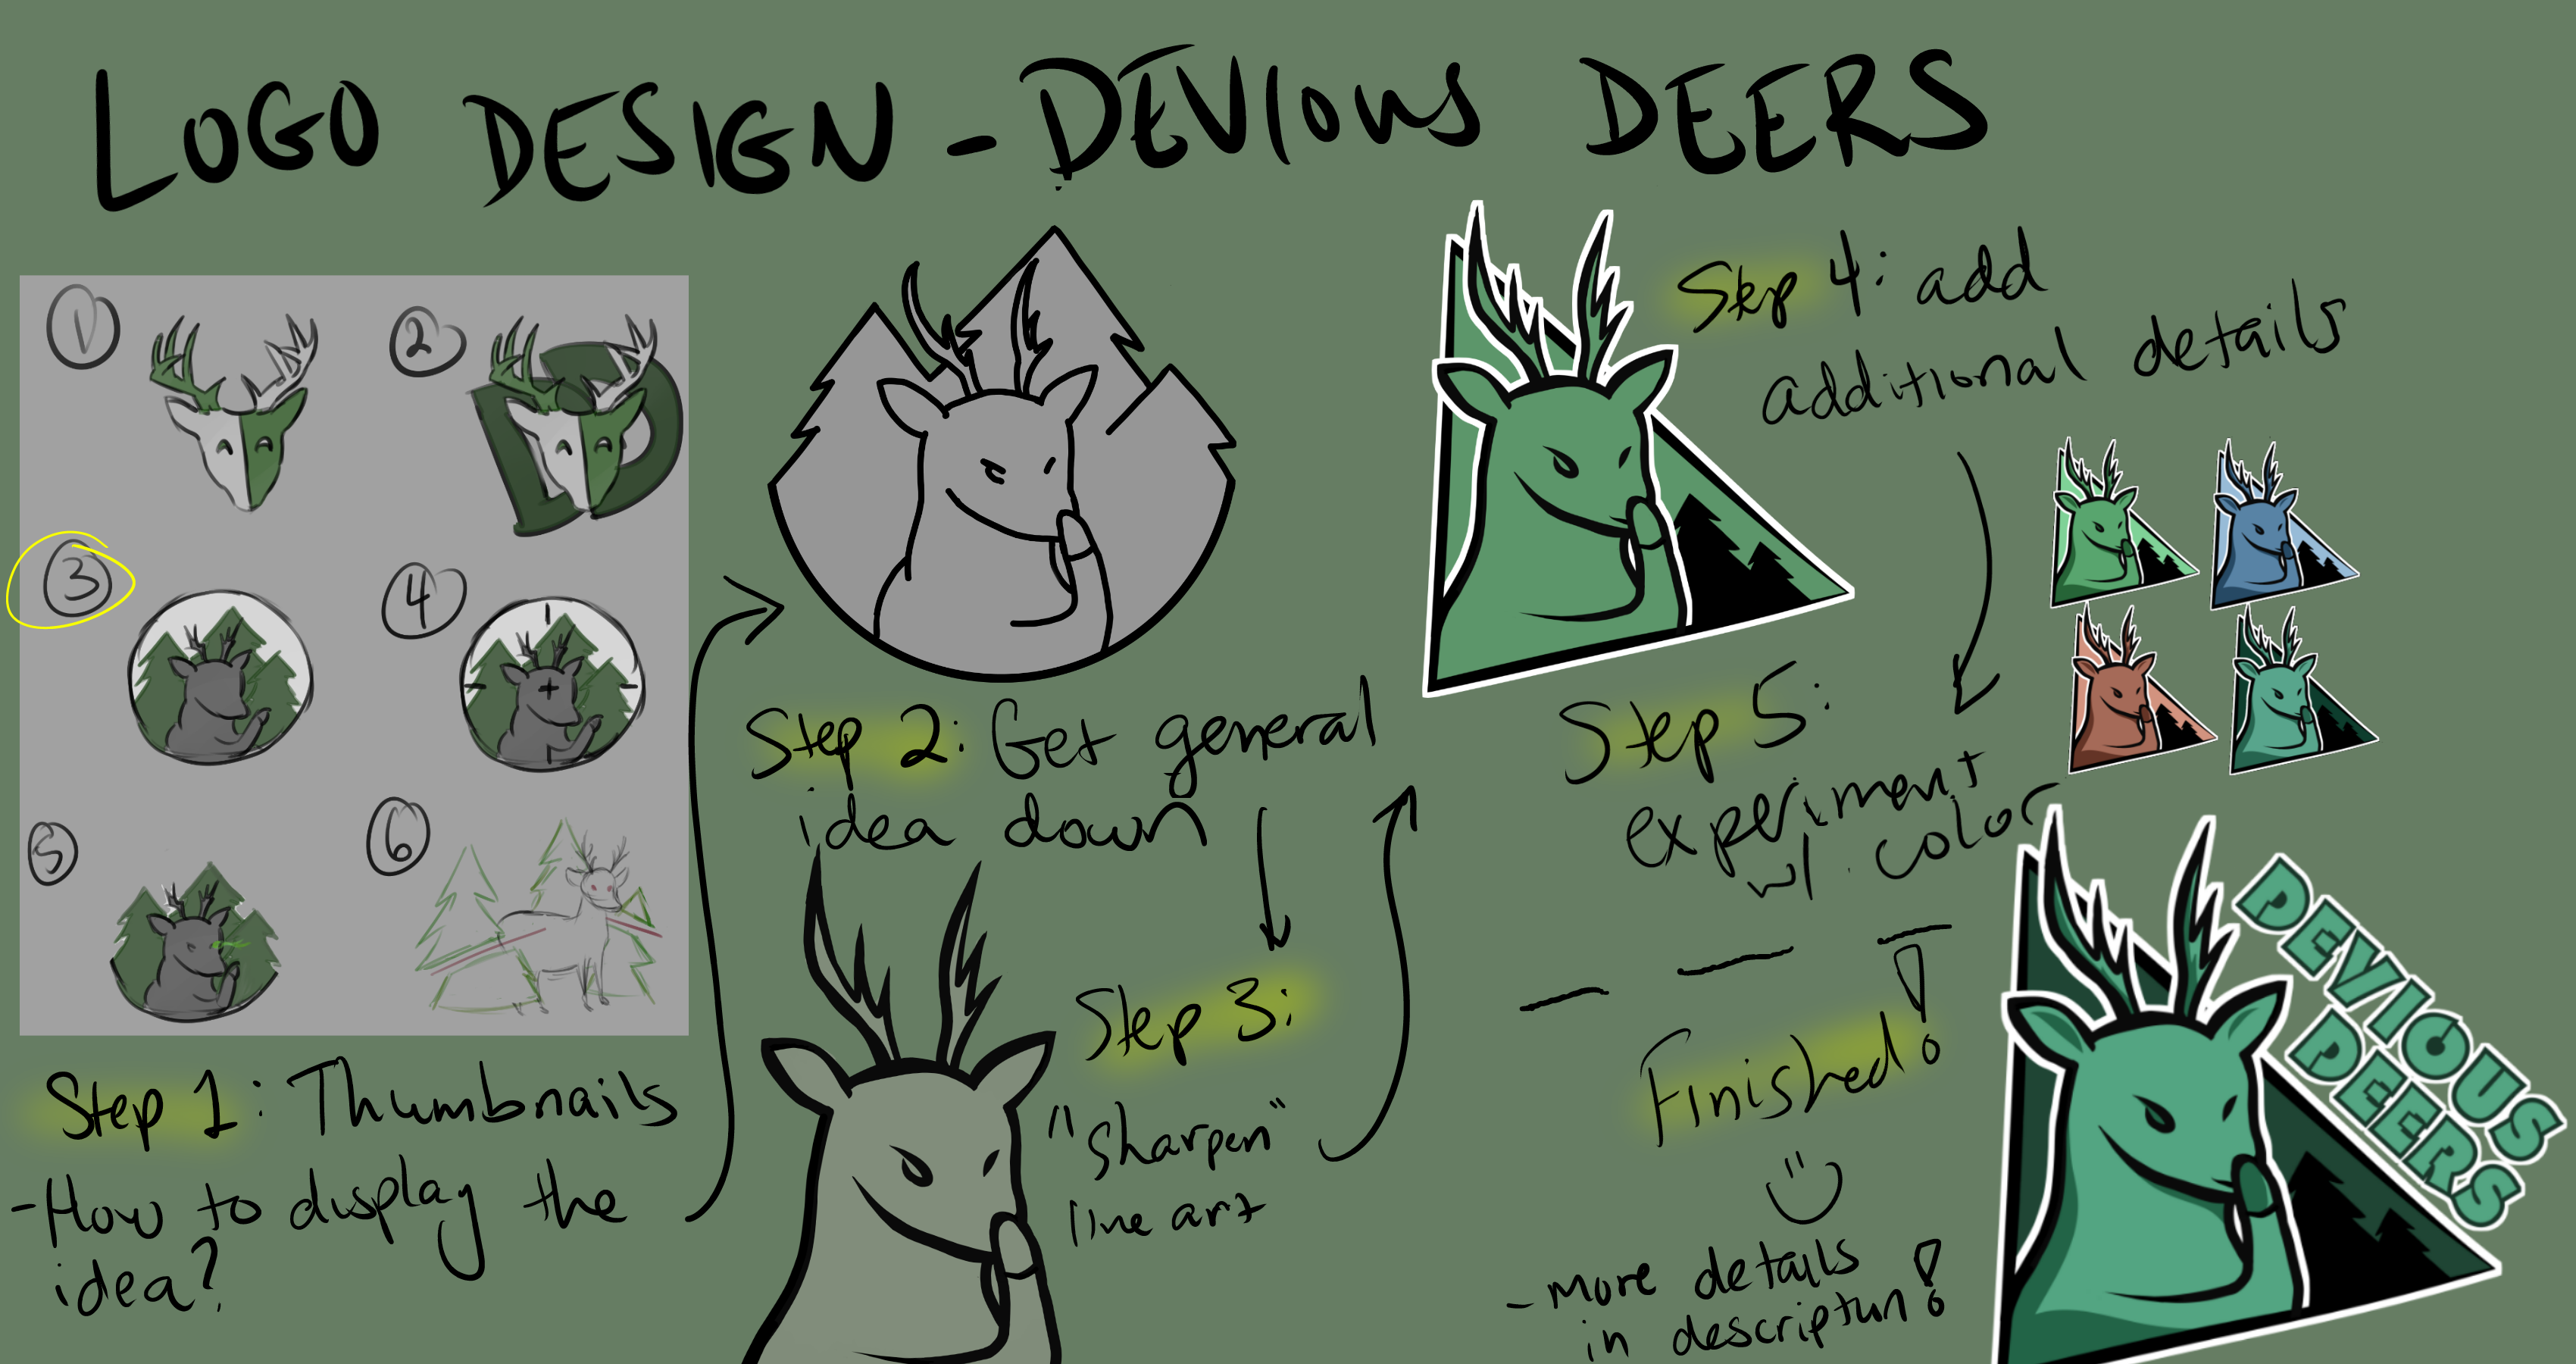 LOGO DESIGN - DEVIOUS DEERS
1
2
3
4
5
6
Step 1: Thumbnails
- How to display the
idea?
Step 2: Get general
idea down
Step 3:
"Sharpen"
line art
Step 4: add
additional details
Step 5:
experiment
w/ color
Finished!
- more details
in description!
DEVIOUS
DEERS